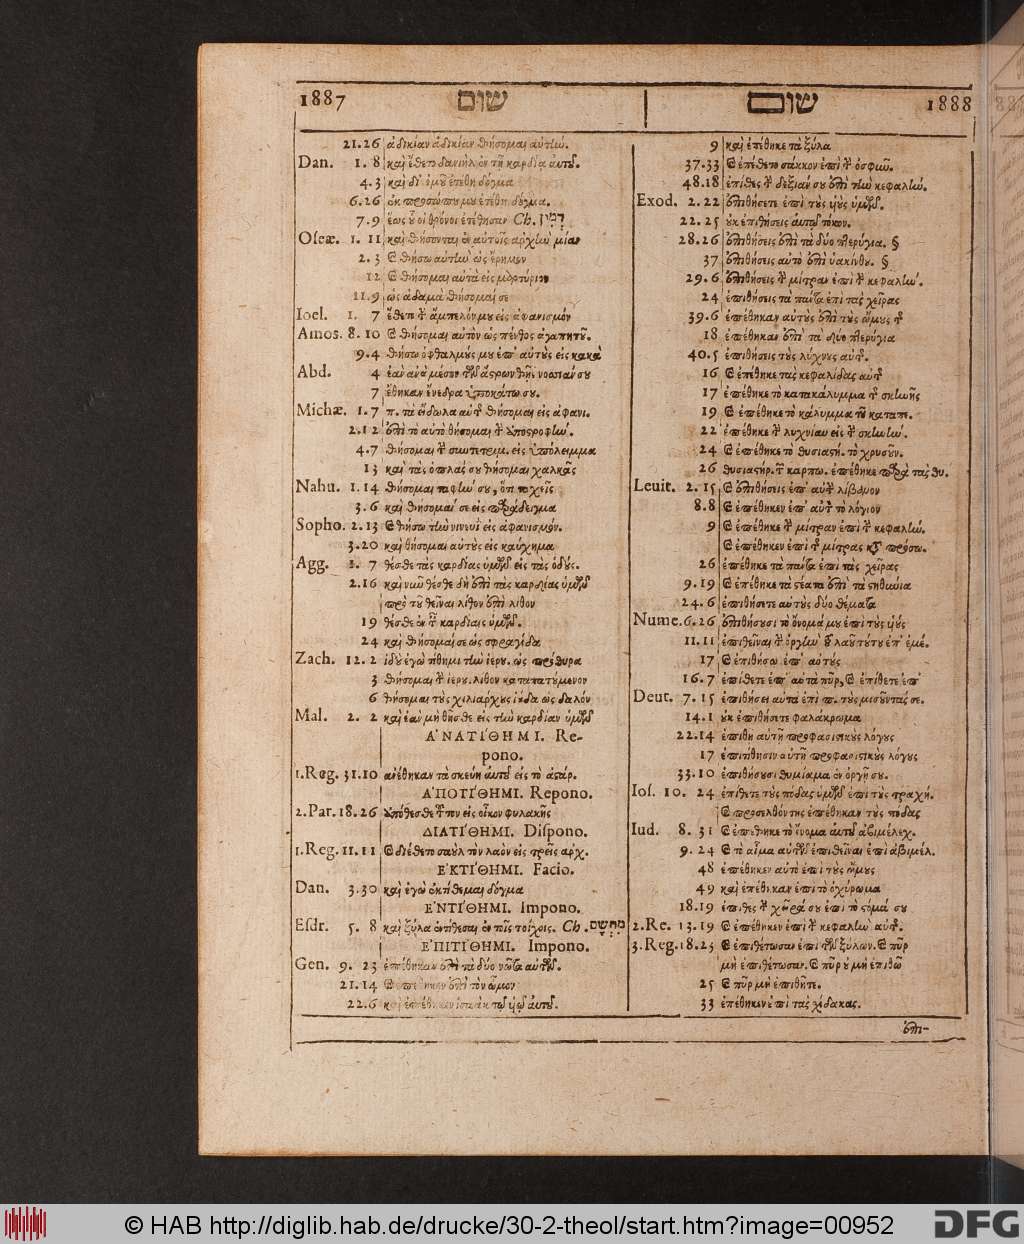 1887 שום שום 1888
21.26 ἀδικίαν ἀδικίαν θήσομαι αὐτίω.
Dan. 1.8 καὶ ἔθετο δανιὴλ ἐν τῇ καρδίᾳ αὐτοῦ.
4.3 καὶ δι' ἐμοῦ ἐτέθη δόγμα
6.26 ἐκ προσώπου μου ἐτέθη δόγμα.
7.9 ἕως οὗ οἱ θρόνοι ἐτέθησαν Ch.
Oseæ. 1.11 καὶ θήσονται ἑαυτοῖς ἀρχὴν μίαν
2.3 καὶ θήσω αὐτὴν ὡς ἔρημον
12 καὶ θήσομαι αὐτὰ εἰς μαρτύριον
11.9 ὡς ἀδαμὰ θήσομαί σε
Ioel. 1.7 ἔθετο τὴν ἄμπελόν μου εἰς ἀφανισμόν
Amos. 8.10 καὶ θήσομαι αὐτὸν ὡς πένθος ἀγαπητοῦ.
9.4 θήσω ὀφθαλμούς μου ἐπ' αὐτοὺς εἰς κακὰ
Abd. 4 ἐὰν ἀνὰ μέσον τῶν ἄστρων θῇς νοσσιάν σου
7 ἔθηκαν ἔνεδρα ὑποκάτω σου.
Michæ. 1.7 π. τὰ εἴδωλα αὐτῆς θήσομαι εἰς ἀφανι.
2.12 ἐπὶ τὸ αὐτὸ θήσομαι τὴν ἀποστροφήν.
4.7 θήσομαι τὴν συντετριμ. εἰς ὑπόλειμμα
13 καὶ τὰς ὁπλάς σου θήσομαι χαλκᾶς
Nahu. 1.14 θήσομαι ταφήν σου, ὅτι ταχεῖς
3.6 καὶ θήσομαί σε εἰς παράδειγμα
Sopho. 2.13 καὶ θήσω τὴν νινευὶ εἰς ἀφανισμόν.
3.20 καὶ θήσομαι αὐτοὺς εἰς καύχημα
Agg. 1.7 θέσθε τὰς καρδίας ὑμῶν εἰς τὰς ὁδούς.
2.16 καὶ νῦν θέσθε δὴ ἐπὶ τὰς καρδίας ὑμῶν
πρὸ τοῦ θεῖναι λίθον ἐπὶ λίθον
19 θέσθε ἐν ταῖς καρδίαις ὑμῶν.
24 καὶ θήσομαί σε ὡς σφραγίδα
Zach. 12.2 ἰδοὺ ἐγὼ τίθημι τὴν ἱερου. ὡς πρόθυρα
3 θήσομαι τὴν ἱερου. λίθον καταπατούμενον
6 θήσομαι τοὺς χιλιάρχους ἰούδα ὡς δαλόν
Mal. 2.2 καὶ ἐὰν μὴ θῆσθε εἰς τὴν καρδίαν ὑμῶν
ἈΝΑΤΊΘΗΜΙ. Re-
pono.
1.Reg. 31.10 ἀνέθηκαν τὰ σκεύη αὐτοῦ εἰς τὸ ἀσάρ.
ἈΠΟΤΊΘΗΜΙ. Repono.
2.Par. 18.26 ἀπόθεσθε τοῦτον εἰς οἶκον φυλακῆς
ΔΙΑΤΊΘΗΜΙ. Dispono.
1.Reg. 11.11 καὶ διέθετο σαοὺλ τὸν λαὸν εἰς τρεῖς ἀρχ.
ἘΚΤΊΘΗΜΙ. Facio.
Dan. 3.30 καὶ ἐγὼ ἐκτίθεμαι δόγμα
ἘΝΤΊΘΗΜΙ. Impono.
Esdr. 5.8 καὶ ξύλα ἐντίθεσαι ἐν τοῖς τοίχοις. Ch.
ἘΠΙΤΊΘΗΜΙ. Impono.
Gen. 9.23 ἐπέθηκαν ἐπὶ τὰ δύο νῶτα αὐτῶν.
21.14 καὶ ἐπέθηκεν ἐπὶ τὸν ὦμον
22.6 καὶ ἐπέθηκεν ἰσαὰκ τῷ υἱῷ αὐτοῦ.
9 καὶ ἐπέθηκε τὰ ξύλα
37.33 καὶ ἐπέθετο σάκκον ἐπὶ τὴν ὀσφῦν.
48.18 ἐπίθες τὴν δεξιάν σου ἐπὶ τὴν κεφαλήν.
Exod. 2.22 ἐπιθήσετε ἐπὶ τοὺς υἱοὺς ὑμῶν.
22.25 οὐκ ἐπιθήσεις αὐτῷ τόκον.
28.26 ἐπιθήσεις ἐπὶ τὰ δύο πτερύγια. §
37 ἐπιθήσεις αὐτὸ ἐπὶ ὑακίνθου. §
29.6 ἐπιθήσεις τὴν μίτραν ἐπὶ τὴν κεφαλήν.
24 ἐπιθήσεις τὰ πάντα ἐπὶ τὰς χεῖρας
39.6 ἐπέθηκαν αὐτοὺς ἐπὶ τοὺς ὤμους τῆς
18 ἐπέθηκαν ἐπὶ τὰ δύο πτερύγια
40.5 ἐπιθήσεις τοὺς λύχνους αὐτῆς.
16 καὶ ἐπέθηκε τὰς κεφαλίδας αὐτῆς
17 ἐπέθηκε τὸ κατακάλυμμα τῆς σκηνῆς
19 καὶ ἐπέθηκε τὸ κάλυμμα τοῦ καταπε.
22 ἐπέθηκε τὴν λυχνίαν εἰς τὴν σκηνήν.
24 καὶ ἐπέθηκε τὸ θυσιαστή. τὸ χρυσοῦν.
26 θυσιαστήρ. τῶν καρπω. ἐπέθηκε παρὰ τὰς θυ.
Leuit. 2.15 καὶ ἐπιθήσεις ἐπ' αὐτὴν λίβανον
8.8 καὶ ἐπέθηκεν ἐπ' αὐτὴν τὸ λόγιον
9 καὶ ἐπέθηκε τὴν μίτραν ἐπὶ τὴν κεφαλήν.
καὶ ἐπέθηκεν ἐπὶ τὴν μίτραν κατὰ πρόσω.
26 ἐπέθηκε τὰ πάντα ἐπὶ τὰς χεῖρας
9.19 καὶ ἐπέθηκε τὰ στέατα ἐπὶ τὰ στηθύνια
24.6 ἐπιθήσετε αὐτοὺς δύο θέματα
Nume. 6.26 ἐπιθήσουσι τὸ ὄνομά μου ἐπὶ τοὺς υἱοὺς
11.11 ἐπιθεῖναι τὴν ὀργὴν τοῦ λαοῦ τούτου ἐπ' ἐμέ.
17 καὶ ἐπιθήσω ἐπ' αὐτούς
16.7 ἐπίθετε ἐπ' αὐτὰ πῦρ, καὶ ἐπίθετε ἐπ'
Deut. 7.15 ἐπιθήσει αὐτὰ ἐπὶ π. τοὺς μισοῦντάς σε.
14.1 οὐκ ἐπιθήσετε φαλάκρωμα
22.14 ἐπιθῇ αὐτῇ προφασιστικοὺς λόγους
17 ἐπιτίθησιν αὐτῇ προφασιστικοὺς λόγους
33.10 ἐπιθήσουσι θυμίαμα ἐν ὀργῇ σου.
Ios. 10.24 ἐπίθετε τοὺς πόδας ὑμῶν ἐπὶ τοὺς τραχή.
καὶ προσελθόντες ἐπέθηκαν τοὺς πόδας
Iud. 8.31 καὶ ἐπέθηκε τὸ ὄνομα αὐτοῦ ἀβιμέλεχ.
9.24 καὶ τὸ αἷμα αὐτῶν ἐπιθεῖναι ἐπὶ ἀβιμέλ.
48 ἐπέθηκεν αὐτὸ ἐπὶ τοὺς ὤμους
49 καὶ ἐπέθηκαν ἐπὶ τὸ ὀχύρωμα
18.19 ἐπίθες τὴν χεῖρά σου ἐπὶ τὸ στόμά σου
2.Re. 13.19 καὶ ἐπέθηκεν ἐπὶ τὴν κεφαλὴν αὐτῆς.
3.Reg. 18.23 καὶ ἐπιθέτωσαν ἐπὶ τῶν ξύλων. καὶ πῦρ
μὴ ἐπιθέτωσαν. καὶ πῦρ οὐ μὴ ἐπιθῶ
25 καὶ πῦρ μὴ ἐπιθῆτε.
33 ἐπέθηκεν ἐπὶ τὰς χίδακας.
ἐπι-
© HAB http://diglib.hab.de/drucke/30-2-theol/start.htm?image=00952 DFG